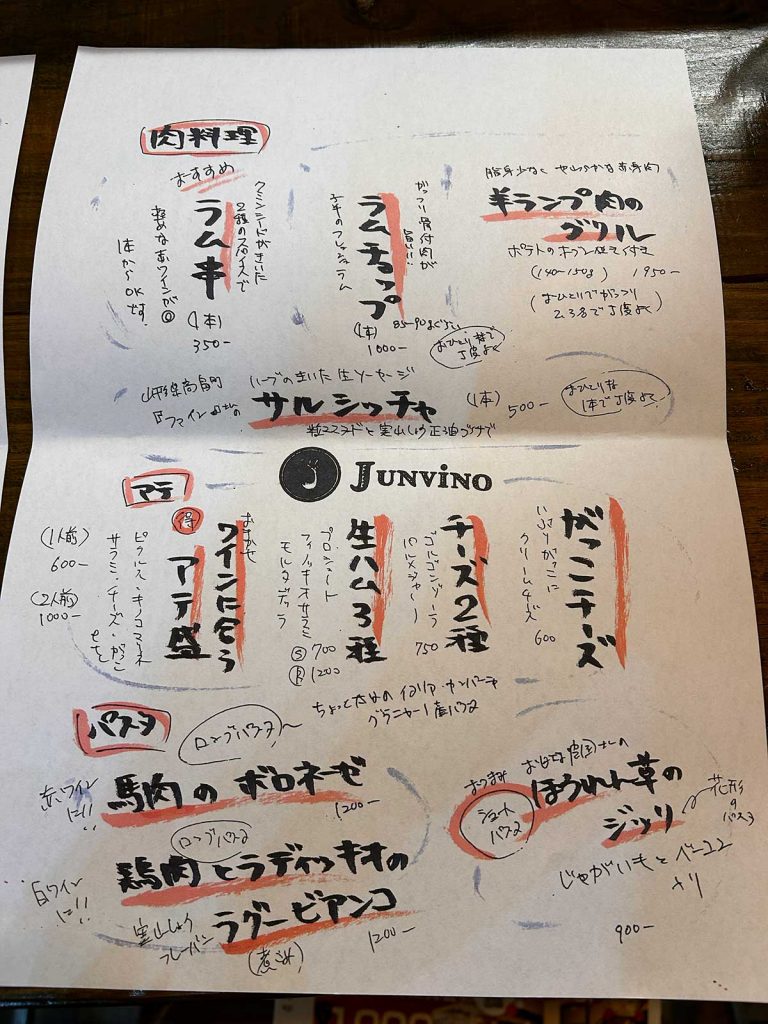 肉料理
おすすめ
クミンシードがきいた
2種のスパイスで
ラム串
軽めな赤ワインが◎
1本からOKです。
(1本)
350-
がっつり骨付肉が
旨い!!
ラムチョップ
子羊のフレッシュラム
(1本)
1000-
脂身少なく やわらかな赤身肉
羊ランプ肉の
グリル
ポテトのオーブン焼き付き
(140-150g) 1950-
(おひとりでがっつり
2,3名で丁度よく)
ハーブの効いた生ソーセージ
山形県高畠町
サルシッチャ
(1本) 500-
おひとり様
1本で丁度よく
粒マスタードと実山しょう
JUNVINO
アテ
がっこチーズ
いぶりがっこに
クリームチーズ
600
チーズ2種
ゴルゴンゾーラ
750
生ハム3種
プロシュート
フィノッキオサラミ
モルタデッラ
Ⓢ 700
1200
おまかせ
ワインに合う
得
アテ盛
ピクルス・キノコマリネ
サラミ・チーズ・がっこ
などなど
(1人前)
600-
(2人前)
1000-
パスタ
ロングパスタ
ちょっと太めのイタリア・カンパーニャ
グラニャーノ産パスタ
馬肉のボロネーゼ
1200-
赤ワイン
に!!
ロングパスタ
鶏肉とラディッキオの
ラグービアンコ
(煮こみ)
1200-
白ワイン
に!!
実山しょう
フレーバー
おつまみ
ショート
パスタ
ほうれん草の
ジッリ
花形
の
パスタ
じゃがいもとベーコン
入り
900-